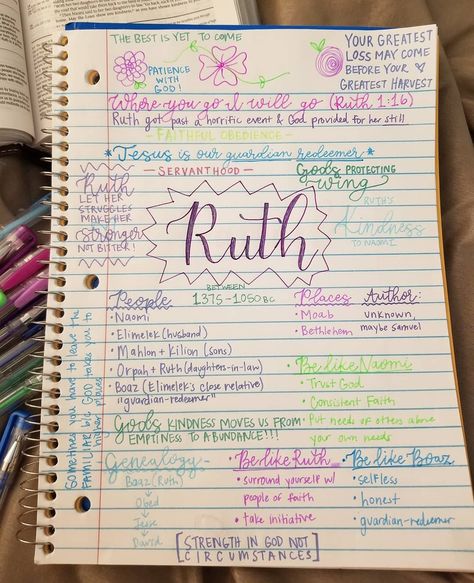 THE BEST IS YET TO COME
PATIENCE
WITH
GOD!
YOUR GREATEST
LOSS MAY COME
BEFORE YOUR
GREATEST HARVEST
Where you go I will go (Ruth 1:16)
Ruth got past a horrific event & God provided for her still
- FAITHFUL OBEDIENCE -
*Jesus is our guardian redeemer*
- SERVANTHOOD -
God's PROTECTING
wing
Ruth
LET HER
STRUGGLES
MAKE HER
Stronger
NOT BITTER!
Ruth
RUTH'S
Kindness
TO NAOMI
BETWEEN
1375-1050 BC
People
• Naomi
• Elimelek (husband)
• Mahlon + Kilion (sons)
• Orpah + Ruth (daughters-in-law)
• Boaz (Elimelek's close relative)
"guardian-redeemer"
Places
• Moab
• Bethlehem
Author:
unknown,
maybe samuel
Be like Naomi
• Trust God
• Consistent Faith
• Put needs of others above
your own needs
Sometimes you have to leave the
FAMILIAR b/c GOD takes you to
another place
God's KINDNESS MOVES US FROM
EMPTINESS TO ABUNDANCE!!!
Genealogy
Boaz (Ruth)
↓
Obed
↓
Jesse
↓
David
Be like Ruth
• surround yourself w/
people of faith
• take initiative
Be like Boaz
• selfless
• honest
• guardian-redeemer
[STRENGTH IN GOD NOT
CIRCUMSTANCES]